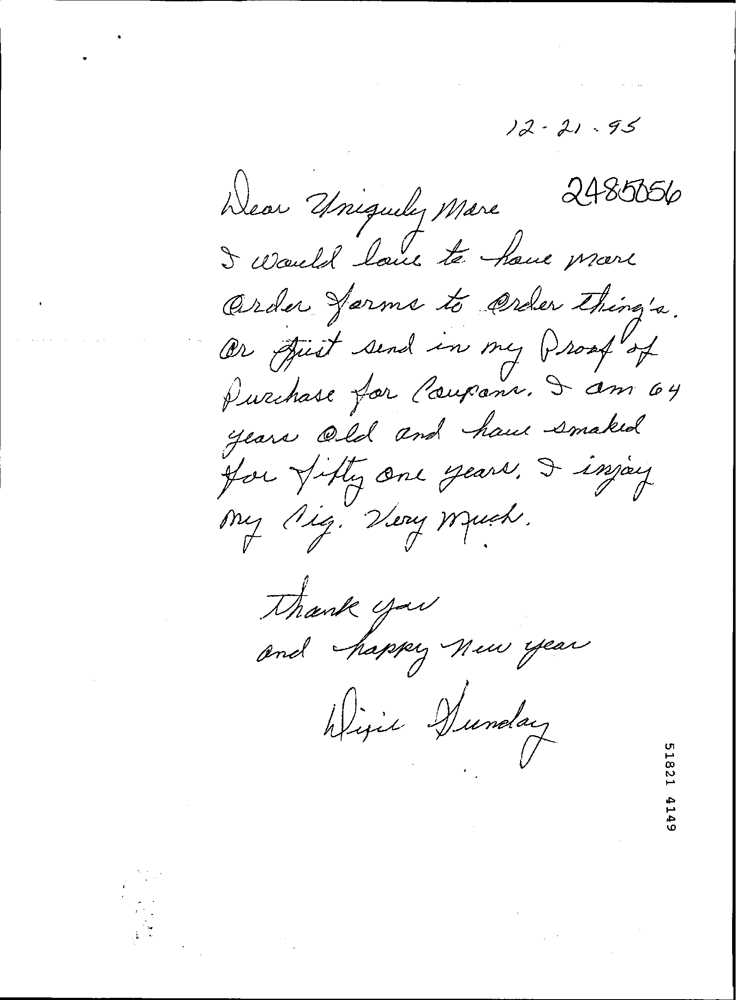 12-21-95
2485056
Dear Uniquely More
I would love to have more
order forms to order thing's.
or just send in my Proof of
Purchase for Coupons. I am 64
years old and have smoked
for fifty one years. I injoy
my Cig. Very much.
Thank you
and happy new year
Dixie Sunday
51821 4149